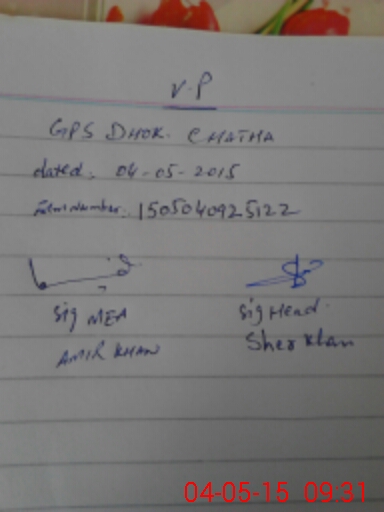 V.P
GPS DHOK. CHATHA
dated. 04-05-2015
Form Number. 1505040925122
Sig MEA
Sig Head.
AMIR KHAN
Sher Khan
04-05-15 09:31